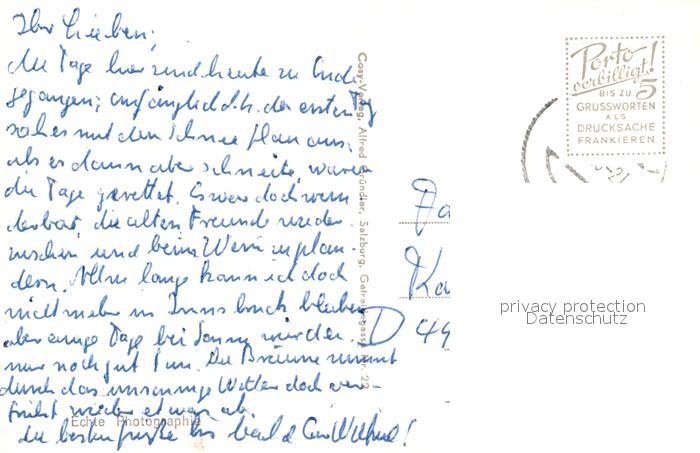 Ihr Lieben,
die Tage hier sind heute zu Ende
gegangen; anfänglich d.h. den ersten Tag
sah es mit dem Schnee flau aus,
als es dann aber schneite, waren
die Tage gerettet. Es war doch wun
derbar, die alten Freunde wieder
sehen und beim Wein zu plau-
dern. Allzu lange kann ich doch
nicht mehr in Innsbruck bleiben
aber einige Tage bei Sonne würden
nur noch gut tun. Die Bräune nimmt
durch das unsonnige Wetter doch ver-
früht wieder etwas ab.
die besten Grüße bis bald Euer Wilfried!
Echte Photographie
Cosy-Verlag, Alfred Gründler, Salzburg, Getreidegasse Nr. 22
Porto
verbilligt!
BIS ZU 5
GRUSSWORTEN
ALS
DRUCKSACHE
FRANKIEREN
Fa
Ka
D 49
privacy protection
Datenschutz